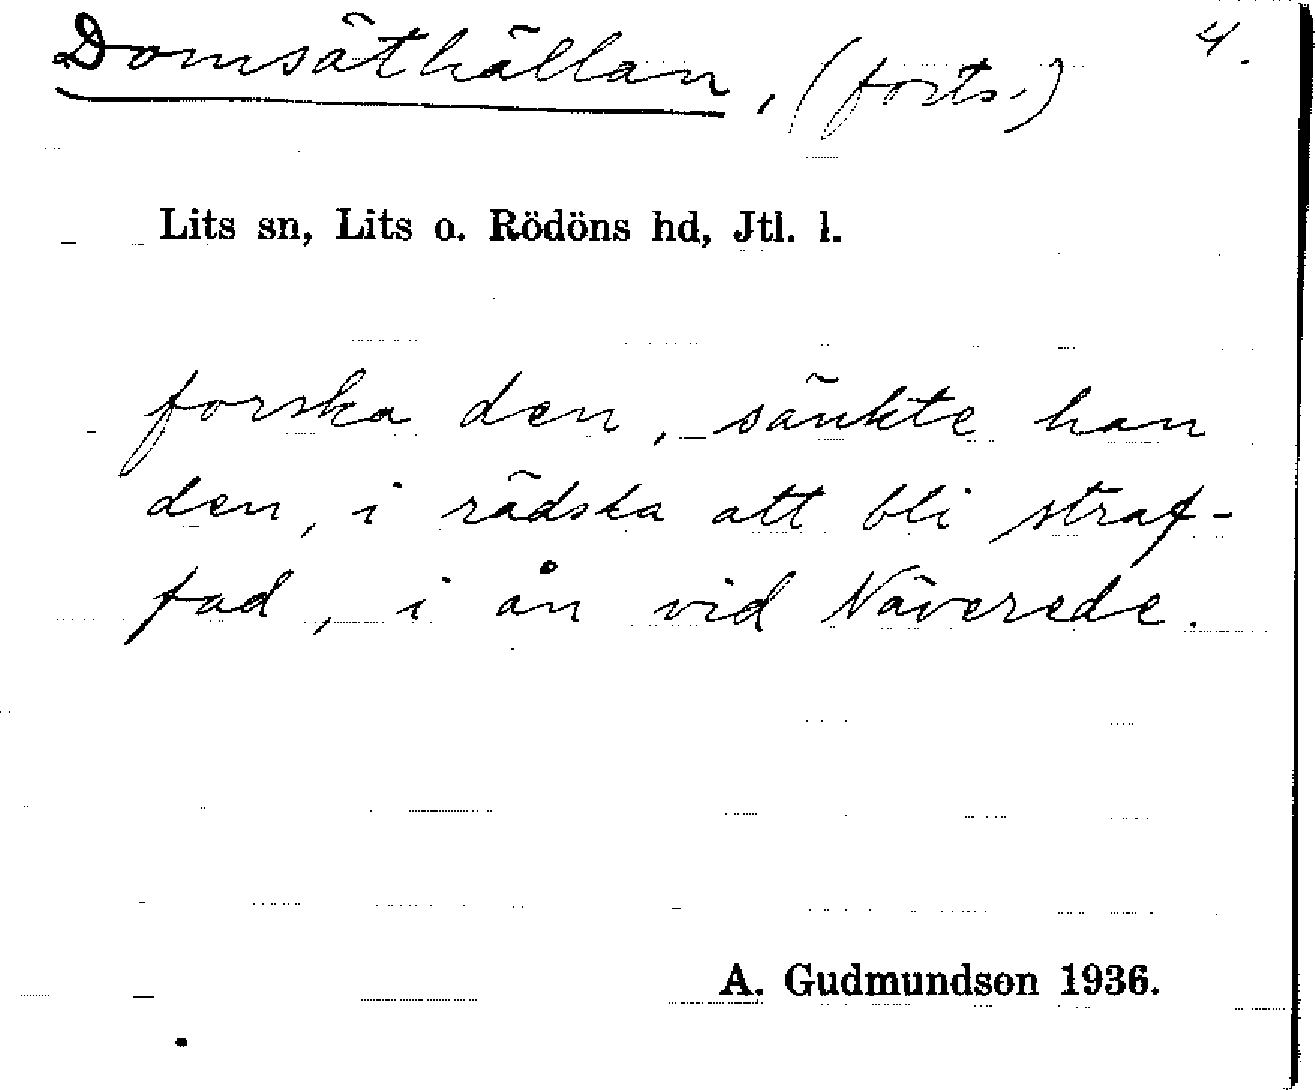 Domsäthällan, (forts.) 4.
Lits sn, Lits o. Rödöns hd, Jtl. l.
forska den, sänkte han
den, i rädska att bli straf-
fad, i ån vid Näverede.
A. Gudmundson 1936.